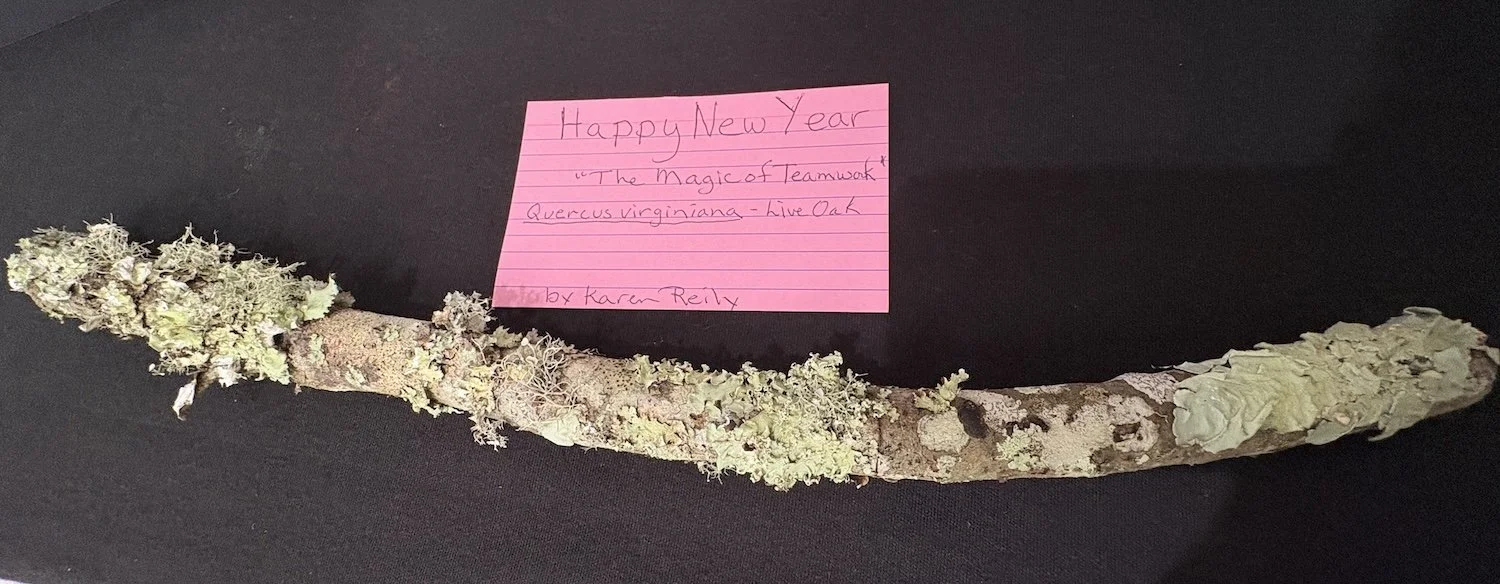 Happy New Year
"The Magic of Teamwork"
Quercus virginiana - Live Oak
by Karen Reily